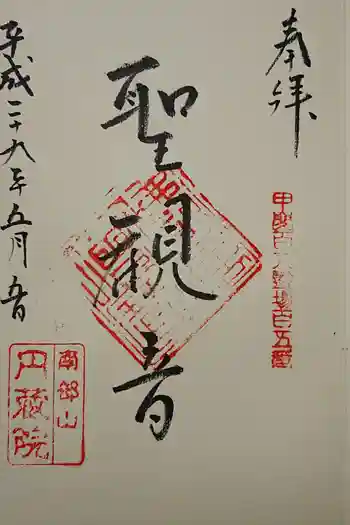 奉拝
甲斐百八霊場百五番
聖観音
平成二十九年五月吾
南部山
円蔵院